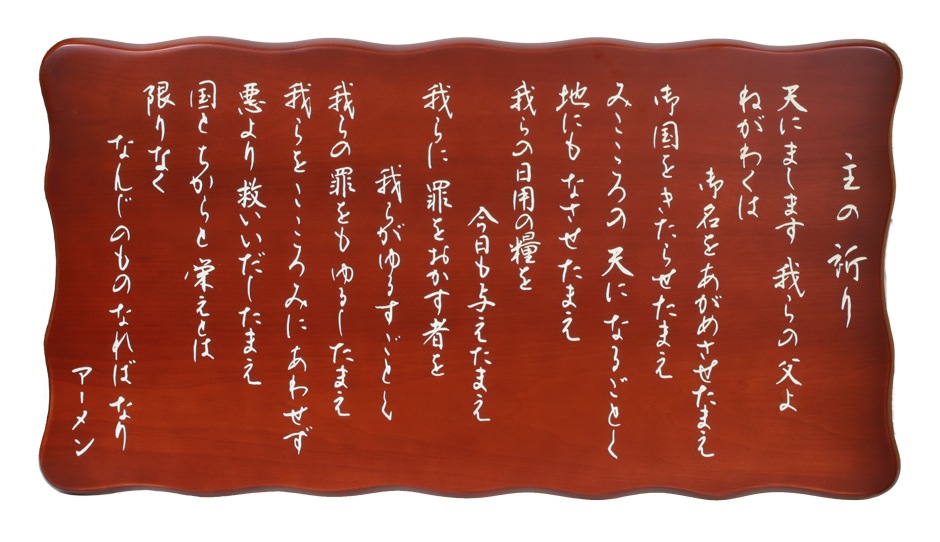 主の祈り
天にまします我らの父よ
ねがわくは
御名をあがめさせたまえ
御国をきたらせたまえ
みこころの天になるごとく
地にもなさせたまえ
我らの日用の糧を
今日も与えたまえ
我らに罪をおかす者を
我らがゆるすごとく
我らの罪をもゆるしたまえ
我らをこころみにあわせず
悪より救いいだしたまえ
国とちからと栄えとは
限りなく
なんじのものなればなり
アーメン